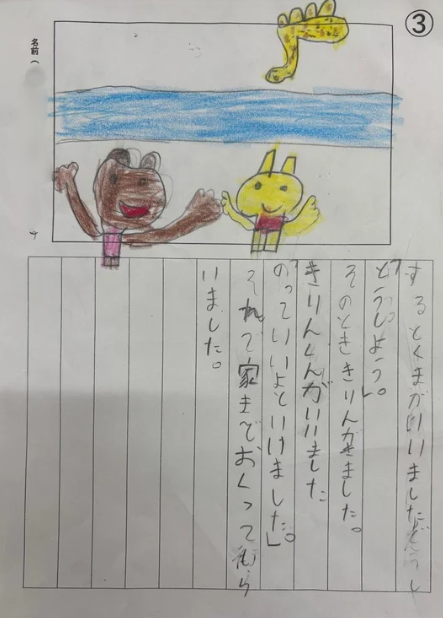 ③
名前（
するとくまがいいました。どうし
「どうしよう。」
そのとききりんがきました。
きりんくんがいいました
「のっていいよといいました。」
それで家までおくってもら
いました。